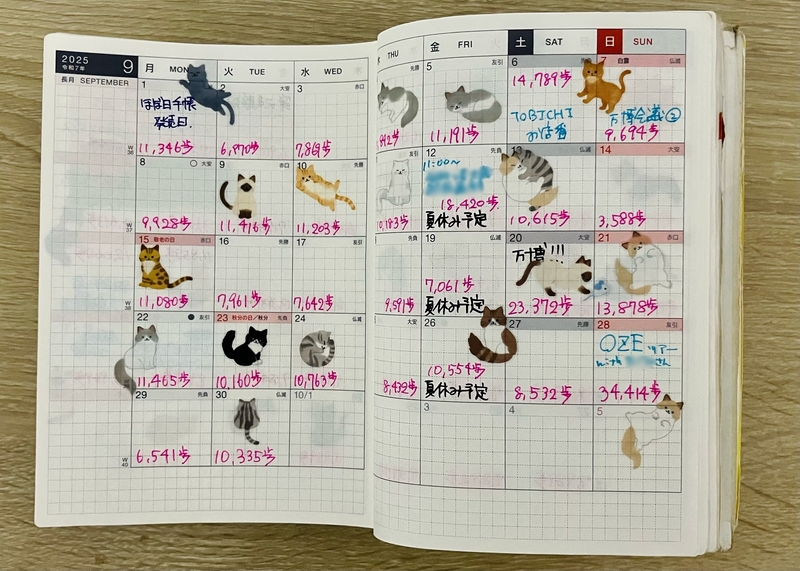 2025
令和7年
9
月 MON
火 TUE
水 WED
THU
金 FRI
土 SAT
日 SUN
長月 SEPTEMBER
1
ほぼ日手帳
発売日.
11,346歩
2 大安
6,970歩
3 赤口
7,869歩
先勝
5 友引
11,191歩
6
14,789歩
TOBICHI
お店番
7 白露 仏滅
万博会議②
9,694歩
W36
8 大安
9,928歩
9 赤口
11,416歩
10
11,203歩
友引
10,183歩
12 先負
11:00〜
18,420歩
夏休み予定
仏滅
10,615歩
14 大安
3,588歩
W37
15 敬老の日 赤口
11,080歩
16 先勝
7,961歩
17 友引
7,642歩
9,591歩
19
7,061歩
夏休み予定
20 大安
万博!!!
23,372歩
21 赤口
13,878歩
W38
22 友引
11,465歩
23 秋分の日/秋分 先負
10,160歩
24 仏滅
10,763歩
8,432歩
26
10,554歩
夏休み予定
27 先勝
8,532歩
28 友引
OZEツアー
with さん
34,414歩
29 先負
6,541歩
30 仏滅
10,335歩
10/1
3
4
5
W40